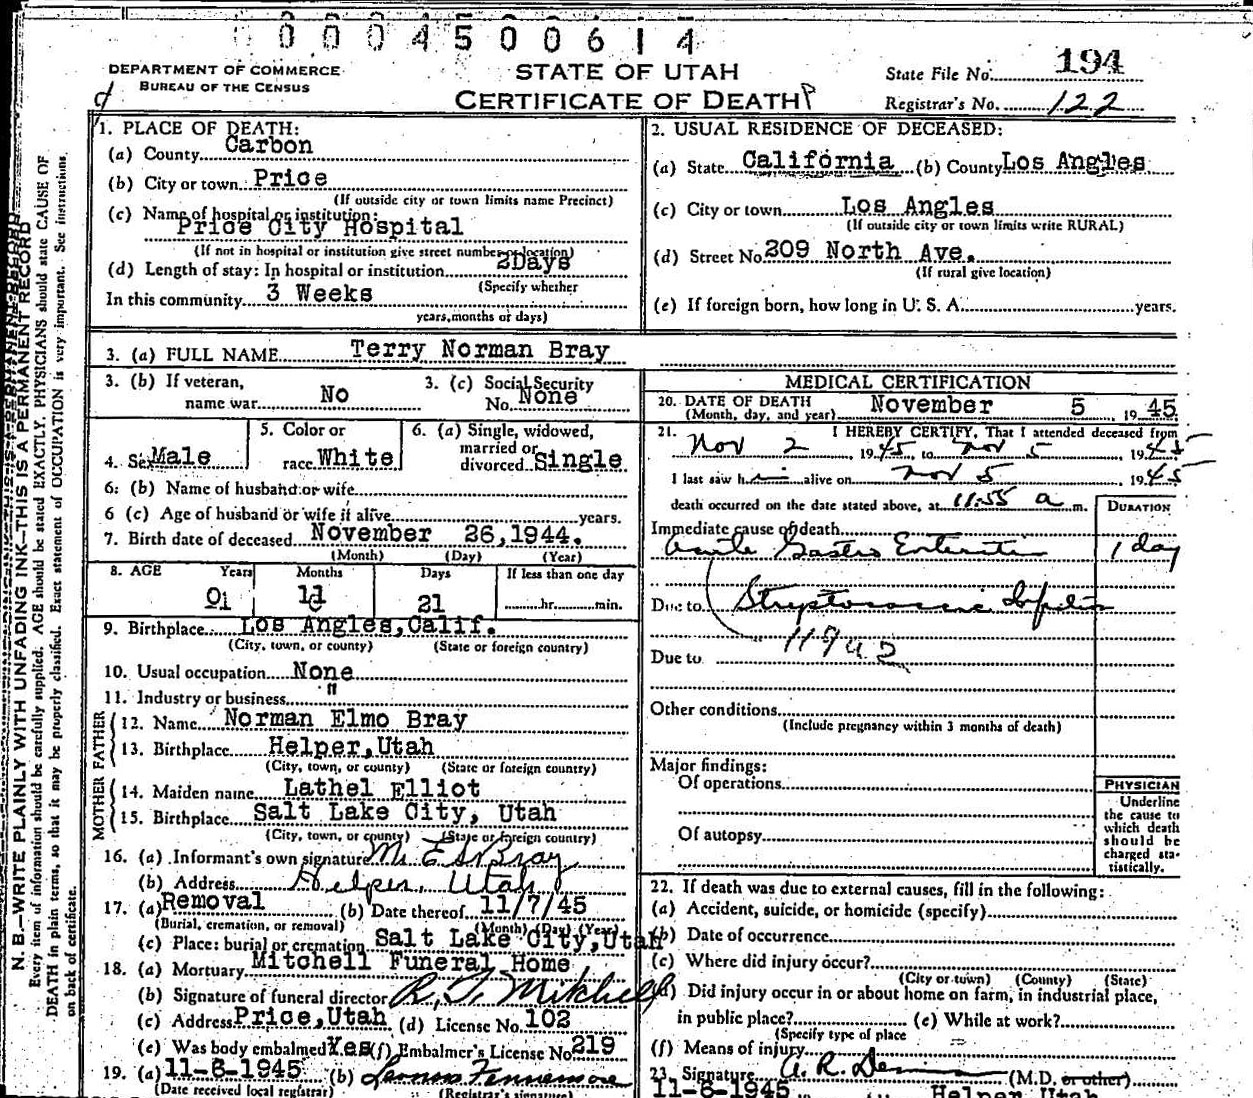 0 0 0 4 5 0 0 6 1 4
DEPARTMENT OF COMMERCE
BUREAU OF THE CENSUS
STATE OF UTAH
CERTIFICATE OF DEATH
State File No. 194
Registrar's No. 122
1. PLACE OF DEATH:
(a) County Carbon
(b) City or town Price
(If outside city or town limits name Precinct)
(c) Name of hospital or institution:
Price City Hospital
(If not in hospital or institution give street number or location)
(d) Length of stay: In hospital or institution 2Days
(Specify whether
In this community 3 Weeks
years, months or days)
2. USUAL RESIDENCE OF DECEASED:
(a) State California (b) County Los Angles
(c) City or town Los Angles
(If outside city or town limits write RURAL)
(d) Street No. 209 North Ave.
(If rural give location)
(e) If foreign born, how long in U. S. A. years.
3. (a) FULL NAME Terry Norman Bray
3. (b) If veteran, name war No
3. (c) Social Security No. None
4. Sex Male
5. Color or race White
6. (a) Single, widowed, married or divorced Single
6: (b) Name of husband or wife
6 (c) Age of husband or wife if alive years.
7. Birth date of deceased November 26, 1944.
(Month) (Day) (Year)
8. AGE Years Months Days If less than one day
21 hr. min.
9. Birthplace Los Angles, Calif.
(City, town, or county) (State or foreign country)
10. Usual occupation None
11. Industry or business "
FATHER
12. Name Norman Elmo Bray
13. Birthplace Helper, Utah
(City, town, or county) (State or foreign country)
MOTHER
14. Maiden name Lathel Elliot
15. Birthplace Salt Lake City, Utah
(City, town, or county) (State or foreign country)
16. (a) Informant's own signature Bray
(b) Address Helper, Utah
17. (a) Removal (b) Date thereof 11/7/45
(Burial, cremation, or removal) (Month) (Day) (Year)
(c) Place: burial or cremation Salt Lake City, Utah
18. (a) Mortuary Mitchell Funeral Home
(b) Signature of funeral director R. F. Mitchell
(c) Address Price, Utah (d) License No. 102
(e) Was body embalmed Yes (f) Embalmer's License No. 219
19. (a) 11-6-1945 (b) Fennemore
(Date received local registrar) (Registrar's signature)
MEDICAL CERTIFICATION
20. DATE OF DEATH
(Month, day, and year) November 5, 1945
21. I HEREBY CERTIFY, That I attended deceased from
Nov 2, 1945, to Nov 5, 1945
I last saw him alive on Nov 5, 1945
death occurred on the date stated above, at 11:55 a m.
DURATION
Immediate cause of death
Acute Gastro Enteritis 1 day
Due to Streptococcic
119a2
Due to
Other conditions
(Include pregnancy within 3 months of death)
Major findings:
Of operations
Of autopsy
PHYSICIAN
Underline
the cause to
which death
should be
charged sta-
tistically.
22. If death was due to external causes, fill in the following:
(a) Accident, suicide, or homicide (specify)
(b) Date of occurrence
(c) Where did injury occur?
(City or town) (County) (State)
(d) Did injury occur in or about home on farm, in industrial place,
in public place? (e) While at work?
(Specify type of place
(f) Means of injury
23. Signature A. R. (M.D. or other)
11-6-1945 Helper Utah
N. B.—WRITE PLAINLY WITH UNFADING INK—THIS IS A PERMANENT RECORD
Every item of information should be carefully supplied. AGE should be stated EXACTLY. PHYSICIANS should state CAUSE OF
DEATH in plain terms, so that it may be properly classified. Exact statement of OCCUPATION is very important. See instructions
on back of certificate.